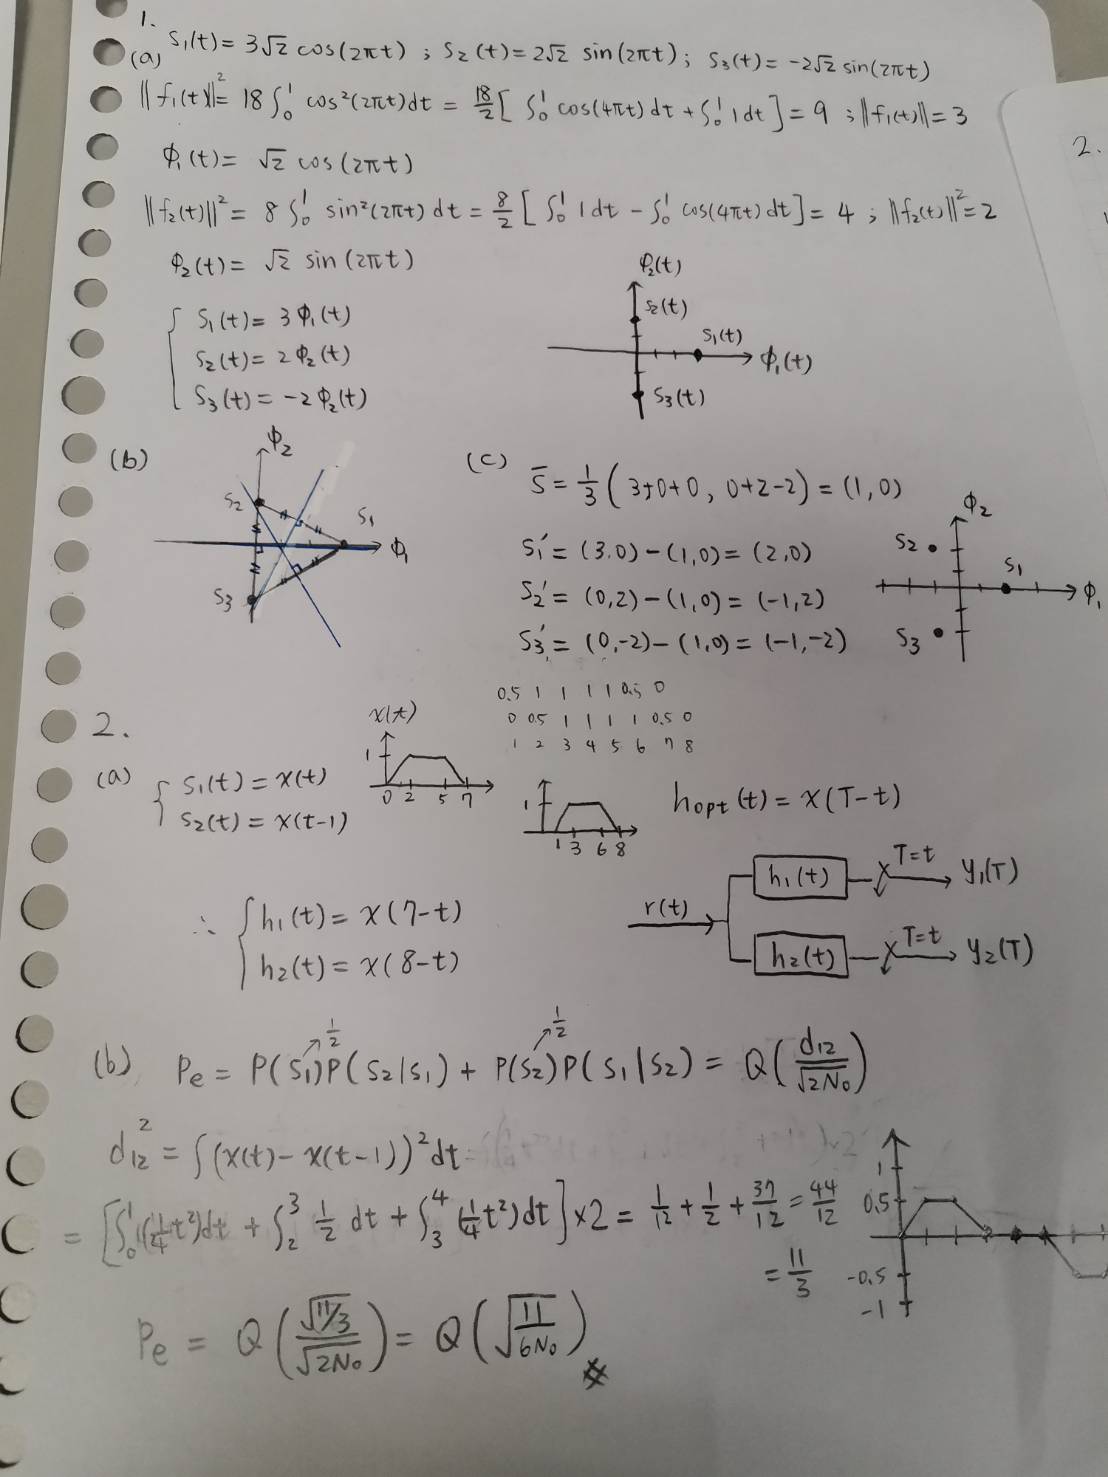 1.
(a) S₁(t) = 3√2 cos(2πt) ; S₂(t) = 2√2 sin(2πt) ; S₃(t) = -2√2 sin(2πt)
||f₁(t)||² = 18 ∫₀¹ cos²(2πt)dt = 18/2 [ ∫₀¹ cos(4πt)dt + ∫₀¹ 1dt ] = 9 ; ||f₁(t)|| = 3
2.
ϕ₁(t) = √2 cos(2πt)
||f₂(t)||² = 8 ∫₀¹ sin²(2πt)dt = 8/2 [ ∫₀¹ 1dt - ∫₀¹ cos(4πt)dt ] = 4 ; ||f₂(t)||² = 2
ϕ₂(t) = √2 sin(2πt)
ϕ₂(t)
S₂(t)
S₁(t)
ϕ₁(t)
S₃(t)
{ S₁(t) = 3ϕ₁(t)
S₂(t) = 2ϕ₂(t)
S₃(t) = -2ϕ₂(t)
(b)
ϕ₂
S₂
S₁
ϕ₁
S₃
(c) S̄ = 1/3 ( 3+0+0 , 0+2-2 ) = (1,0)
S₁' = (3,0) - (1,0) = (2,0)
S₂' = (0,2) - (1,0) = (-1,2)
S₃' = (0,-2) - (1,0) = (-1,-2)
ϕ₂
S₂
S₁
ϕ₁
S₃
0.5 1 1 1 1 0.5 0
0 0.5 1 1 1 1 0.5 0
1 2 3 4 5 6 7 8
2.
(a) { S₁(t) = x(t)
S₂(t) = x(t-1)
x(t)
1
0 2 5 7
1
1 3 6 8
hopt(t) = x(T-t)
∴ { h₁(t) = x(7-t)
h₂(t) = x(8-t)
r(t)
h₁(t) T=t y₁(T)
h₂(t) T=t y₂(T)
1/2 1/2
(b) Pe = P(S₁)P(S₂|S₁) + P(S₂)P(S₁|S₂) = Q( d₁₂/√2N₀ )
d₁₂² = ∫(x(t) - x(t-1))²dt
= [ ∫₀¹ (1/4 t²)dt + ∫₂³ 1/2 dt + ∫₃⁴ (1/4 t²)dt ] ×2 = 1/12 + 1/2 + 37/12 = 44/12
= 11/3
1
0.5
-0.5
-1
Pe = Q( √11/3 / √2N₀ ) = Q( √11/6N₀ )